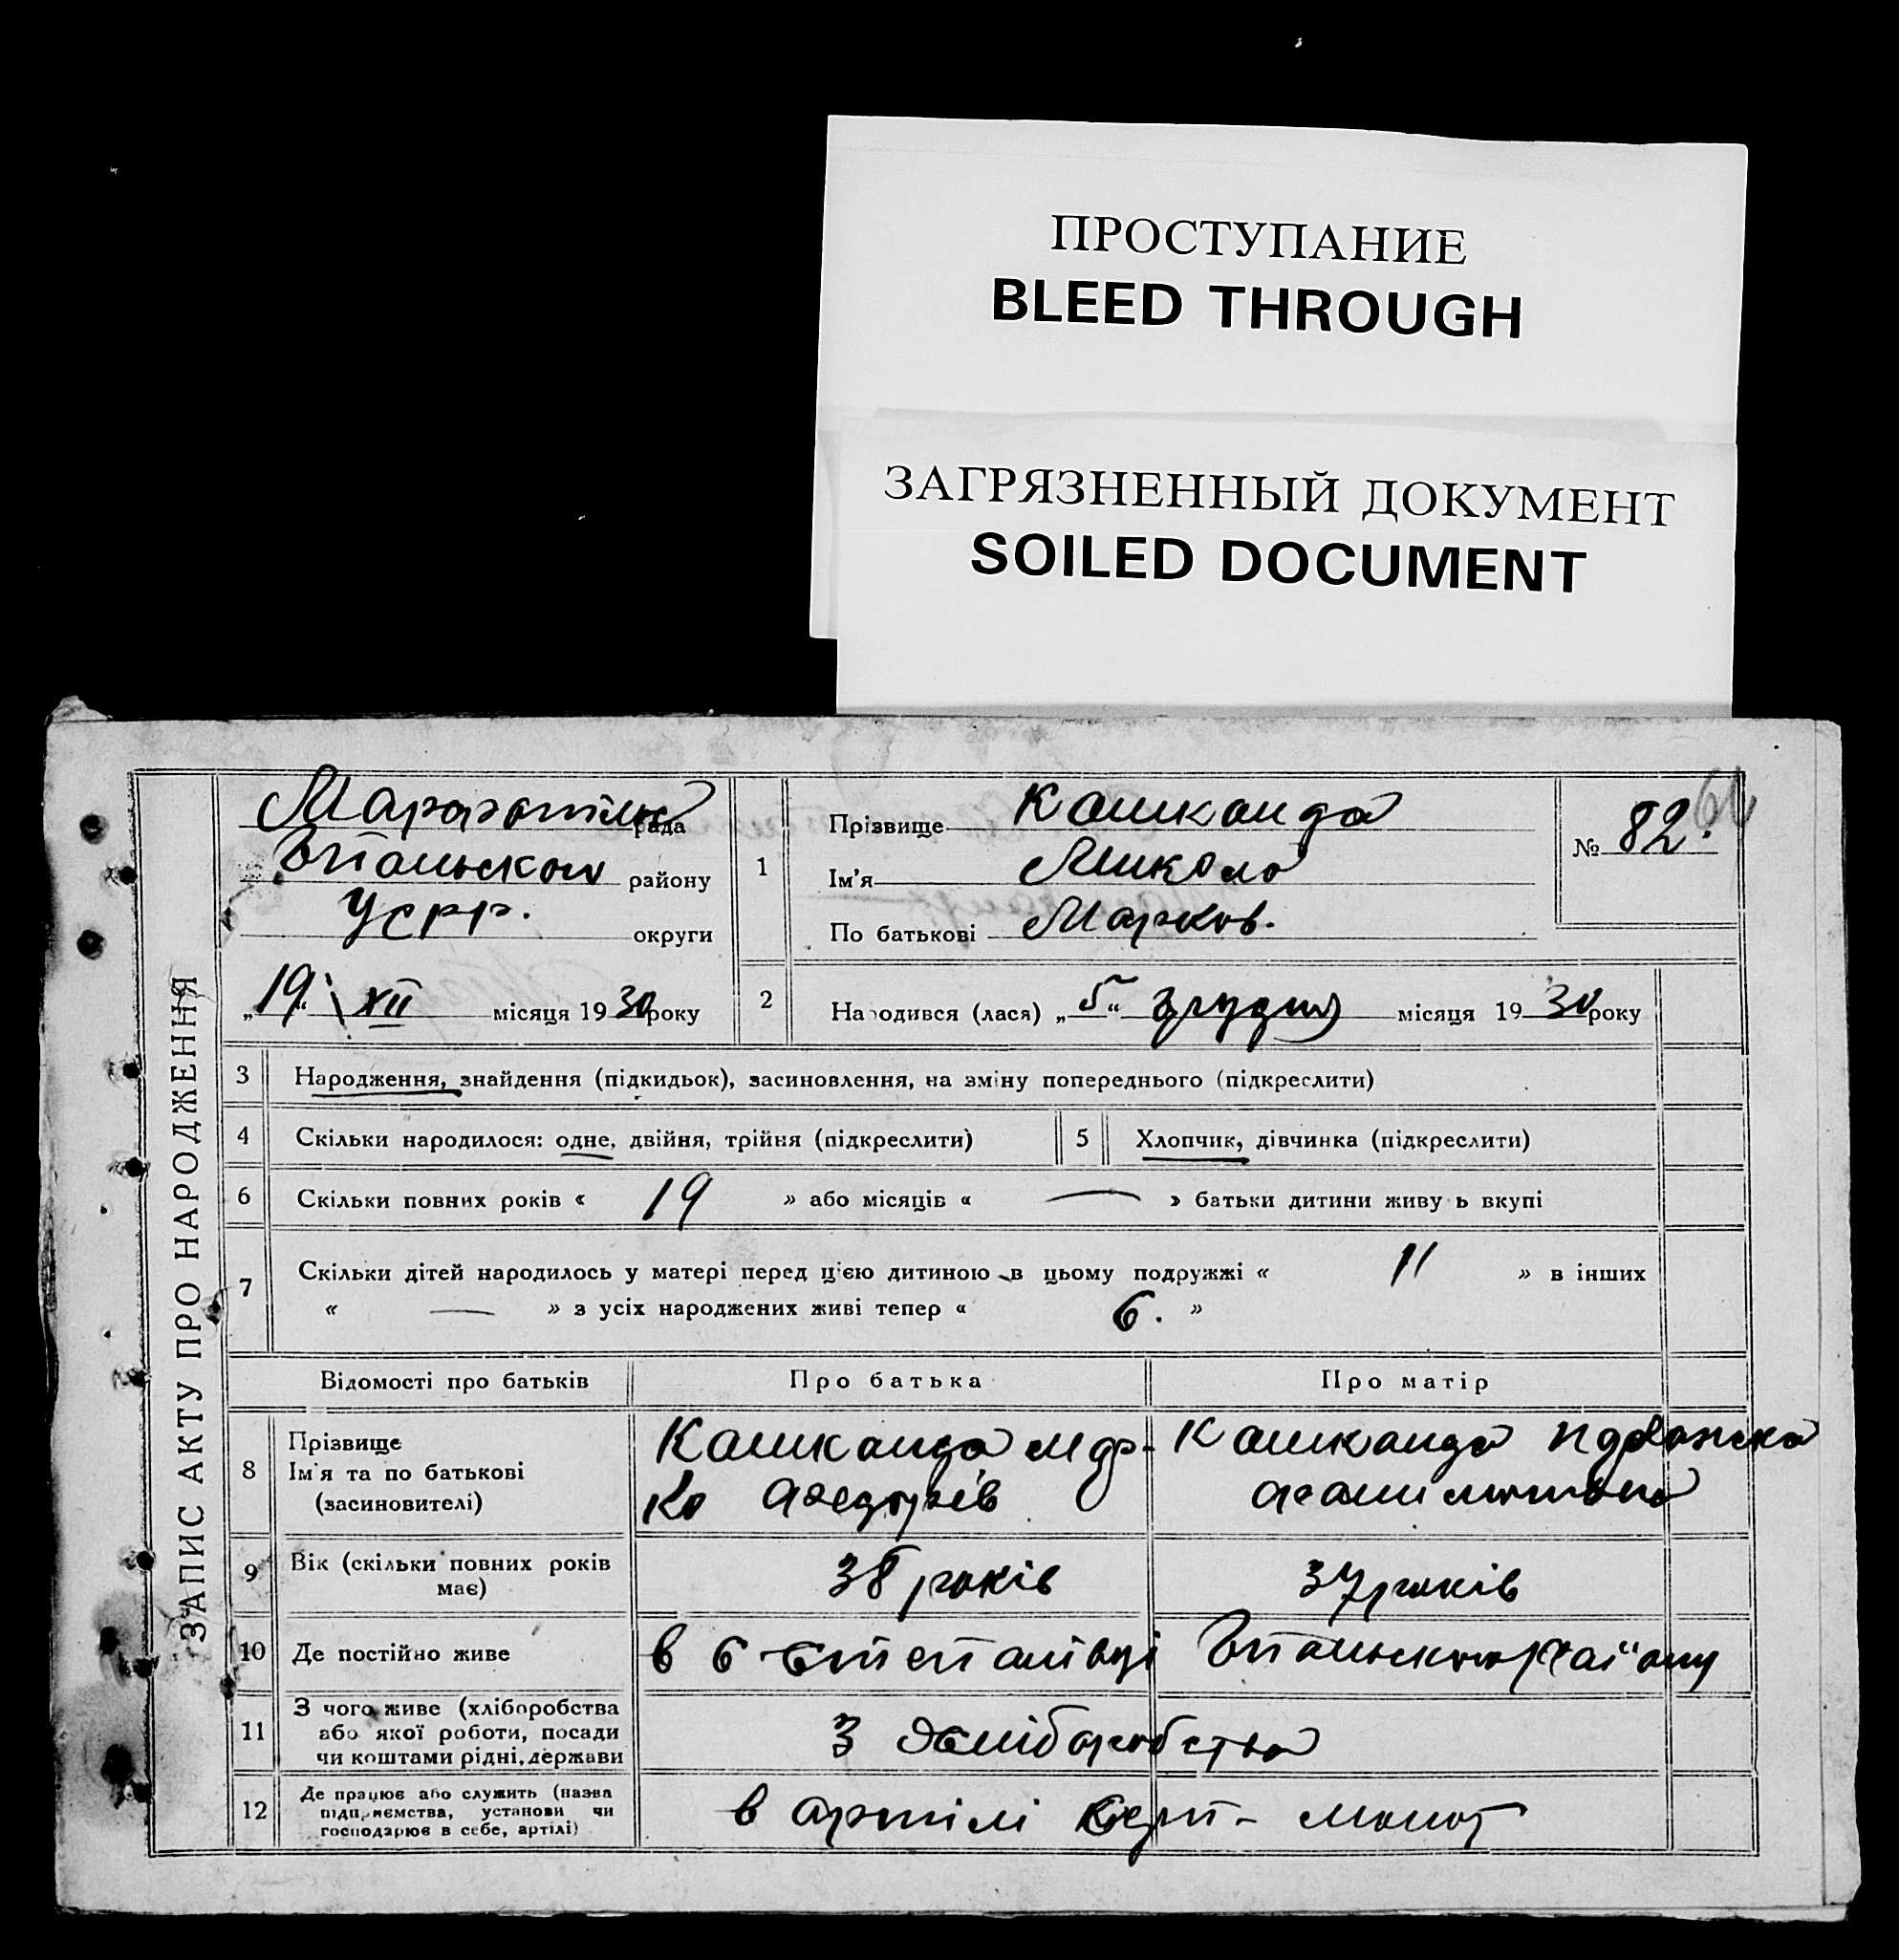 ПРОСТУПАНИЕ
BLEED THROUGH
ЗАГРЯЗНЕННЫЙ ДОКУМЕНТ
SOILED DOCUMENT
ЗАПИС АКТУ ПРО НАРОДЖЕННЯ
рада
району
УСРР. округи
„19“ XII місяця 1930 року
1
Прізвище Кашканда
Ім'я Микола
По батькові Марков.
№ 82.
2 Народився (лася) „5“ грудня місяця 1930 року
3 Народження, знайдення (підкидьок), засиновлення, на зміну попереднього (підкреслити)
4 Скільки народилося: одне, двійня, трійня (підкреслити) 5 Хлопчик, дівчинка (підкреслити)
6 Скільки повних років « 19 » або місяців « — » батьки дитини живу ь вкупі
7 Скільки дітей народилось у матері перед цією дитиною в цьому подружжі « 11 » в інших
« — » з усіх народжених живі тепер « 6. »
Відомості про батьків Про батька Про матір
8 Прізвище
Ім'я та по батькові
(засиновителі)
Кашканда Мар-
ко Федорів
Кашканда
9 Вік (скільки повних років має)
38 років 37 років
10 Де постійно живе в с Степанівці району
11 З чого живе (хліборобства
або якої роботи, посади
чи коштами рідні, держави
З хліборобства
12 Де працює або служить (назва
підприємства, установи чи
господарює в себе, артілі)
в артілі Серп - молот